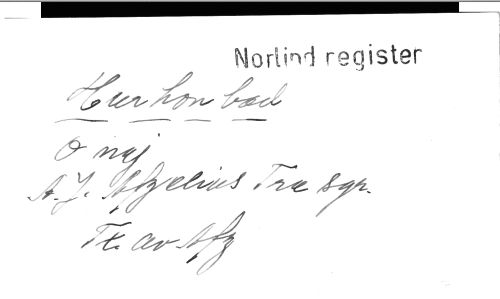 Norlind register
Hur hon bad
O nej
A. J. Afzelius Tra sgr.
Tx. av Afz